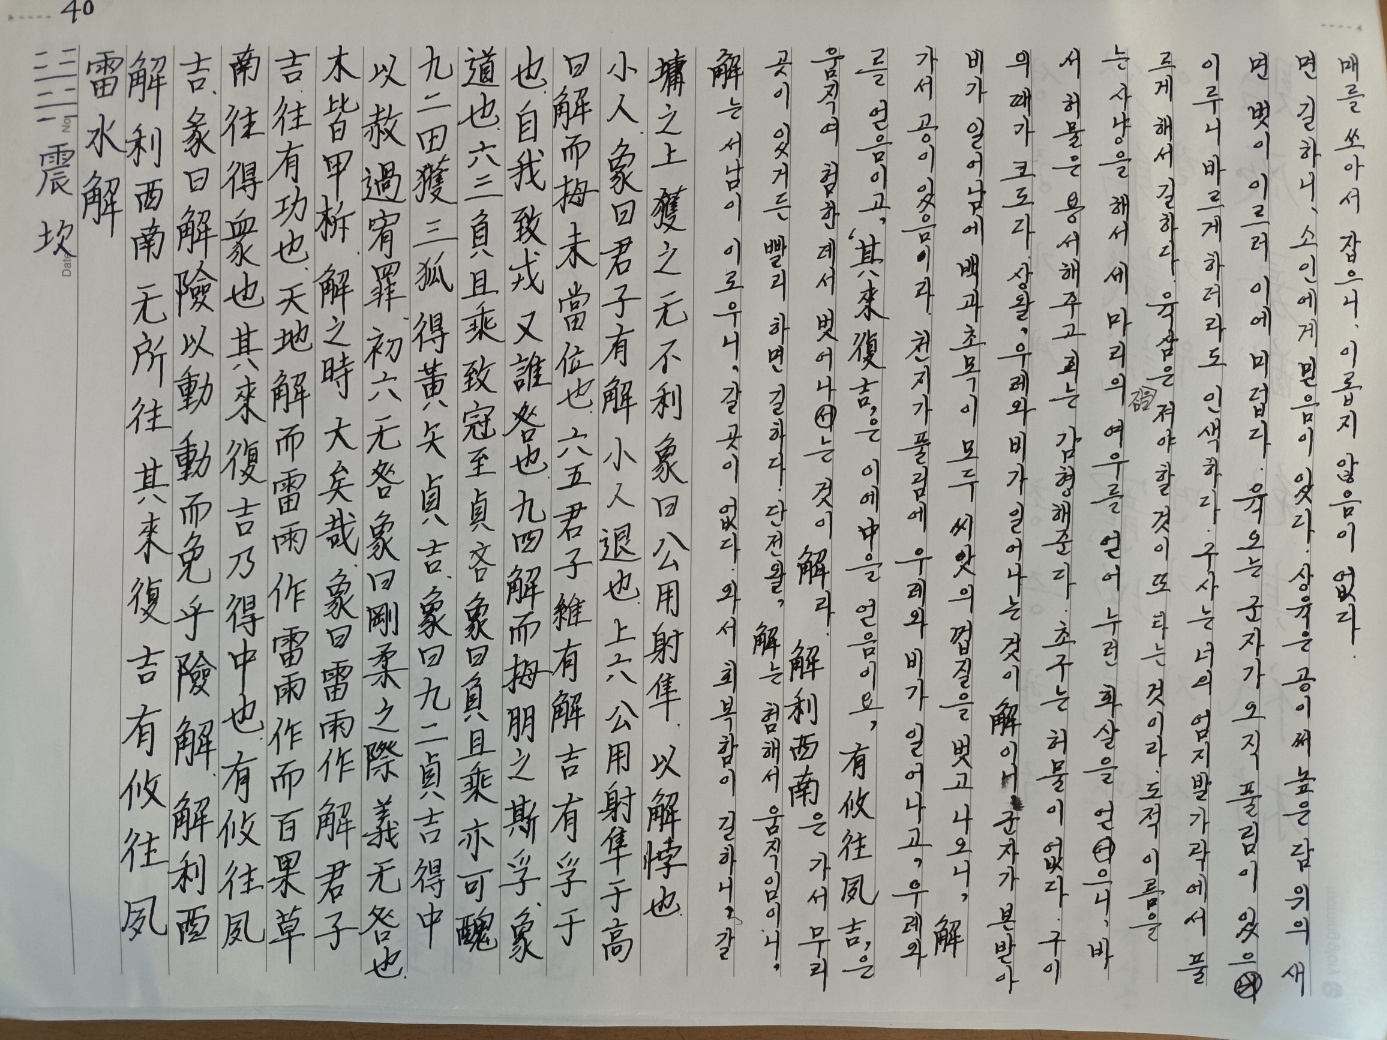 40
震 坎
雷水解
解利西南无所往 其來復吉 有攸往 夙
吉. 彖曰解險以動 動而免乎險解. 解利西
南往得衆也 其來復吉乃得中也 有攸往夙
吉. 往有功也. 天地解而雷雨作 雷雨作而百果草
木皆甲柝. 解之時大矣哉. 象曰雷雨作解 君子
以赦過宥罪. 初六无咎 象曰剛柔之際 義无咎也.
九二田獲三狐 得黃矢 貞吉. 象曰九二貞吉得中
道也. 六三負且乘致冦至貞吝 象曰負且乘亦可醜
也. 自我致戎 又誰咎也. 九四解而拇朋之斯孚. 象
曰解而拇未當位也. 六五君子維有解吉有孚于
小人 象曰君子有解 小人退也. 上六公用射隼于高
墉之上獲之无不利 象曰公用射隼. 以解悖也.
解는 서남이 이로우니, 갈곳이 없다. 와서 회복함이 길하니, 갈
곳이 있거든 빨리 하면 길하다. 단전왈, 解는 험해서 움직임이니,
움직여 험한데서 벗어나는 것이 解라. 解利西南은 가서 무리
를 얻음이고, 其來復吉,은 이에 中을 얻음이요, 有攸往夙吉,은
가서 공이 있음이라. 천지가 풀림에 우레와 비가 일어나고, 우레와
비가 일어남에 백과초목이 모두 씨앗의 껍질을 벗고 나오니, 解
의 때가 크도다. 상왈, 우레와 비가 일어나는 것이 解이니 군자가 본받아
서 허물을 용서해주고 죄는 감형해준다. 초구는 허물이 없다. 구이
는 사냥을 해서 세 마리의 여우를 얻어 누런 화살을 얻으니, 바
르게 해서 길하다. 육삼은 져야할 것이 또 타는 것이라. 도적 이름을
이루니 바르게 하더라도 인색하다. 구사는 너의 엄지발가락에서 풀
면 벗이 이르러 이에 미덥다. 육오는 군자가 오직 풀림이 있으
면 길하니, 소인에게 믿음이 있다. 상육은 공이 써 높은 담 위의 새
매를 쏘아서 잡으니, 이롭지 않음이 없다.